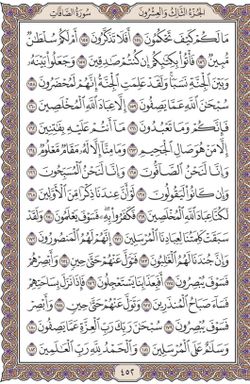 الجُزْءُ الثَّالِثُ وَالعِشْرُونَ سُورَةُ الصَّافَّاتِ
مَا لَكُمْ كَيْفَ تَحْكُمُونَ ١٥٤ أَفَلَا تَذَكَّرُونَ ١٥٥ أَمْ لَكُمْ سُلْطَٰنٌ
مُّبِينٌ ١٥٦ فَأْتُوا۟ بِكِتَٰبِكُمْ إِن كُنتُمْ صَٰدِقِينَ ١٥٧ وَجَعَلُوا۟ بَيْنَهُۥ
وَبَيْنَ ٱلْجِنَّةِ نَسَبًا وَلَقَدْ عَلِمَتِ ٱلْجِنَّةُ إِنَّهُمْ لَمُحْضَرُونَ ١٥٨
سُبْحَٰنَ ٱللَّهِ عَمَّا يَصِفُونَ ١٥٩ إِلَّا عِبَادَ ٱللَّهِ ٱلْمُخْلَصِينَ ١٦٠
فَإِنَّكُمْ وَمَا تَعْبُدُونَ ١٦١ مَآ أَنتُمْ عَلَيْهِ بِفَٰتِنِينَ ١٦٢
إِلَّا مَنْ هُوَ صَالِ ٱلْجَحِيمِ ١٦٣ وَمَا مِنَّآ إِلَّا لَهُۥ مَقَامٌ مَّعْلُومٌ ١٦٤
وَإِنَّا لَنَحْنُ ٱلصَّآفُّونَ ١٦٥ وَإِنَّا لَنَحْنُ ٱلْمُسَبِّحُونَ ١٦٦
وَإِن كَانُوا۟ لَيَقُولُونَ ١٦٧ لَوْ أَنَّ عِندَنَا ذِكْرًا مِّنَ ٱلْأَوَّلِينَ ١٦٨
لَكُنَّا عِبَادَ ٱللَّهِ ٱلْمُخْلَصِينَ ١٦٩ فَكَفَرُوا۟ بِهِۦ فَسَوْفَ يَعْلَمُونَ ١٧٠ وَلَقَدْ
سَبَقَتْ كَلِمَتُنَا لِعِبَادِنَا ٱلْمُرْسَلِينَ ١٧١ إِنَّهُمْ لَهُمُ ٱلْمَنصُورُونَ ١٧٢
وَإِنَّ جُندَنَا لَهُمُ ٱلْغَٰلِبُونَ ١٧٣ فَتَوَلَّ عَنْهُمْ حَتَّىٰ حِينٍ ١٧٤ وَأَبْصِرْهُمْ
فَسَوْفَ يُبْصِرُونَ ١٧٥ أَفَبِعَذَابِنَا يَسْتَعْجِلُونَ ١٧٦ فَإِذَا نَزَلَ بِسَاحَتِهِمْ
فَسَآءَ صَبَاحُ ٱلْمُنذَرِينَ ١٧٧ وَتَوَلَّ عَنْهُمْ حَتَّىٰ حِينٍ ١٧٨ وَأَبْصِرْ
فَسَوْفَ يُبْصِرُونَ ١٧٩ سُبْحَٰنَ رَبِّكَ رَبِّ ٱلْعِزَّةِ عَمَّا يَصِفُونَ ١٨٠
وَسَلَٰمٌ عَلَى ٱلْمُرْسَلِينَ ١٨١ وَٱلْحَمْدُ لِلَّهِ رَبِّ ٱلْعَٰلَمِينَ ١٨٢
٤٥٢